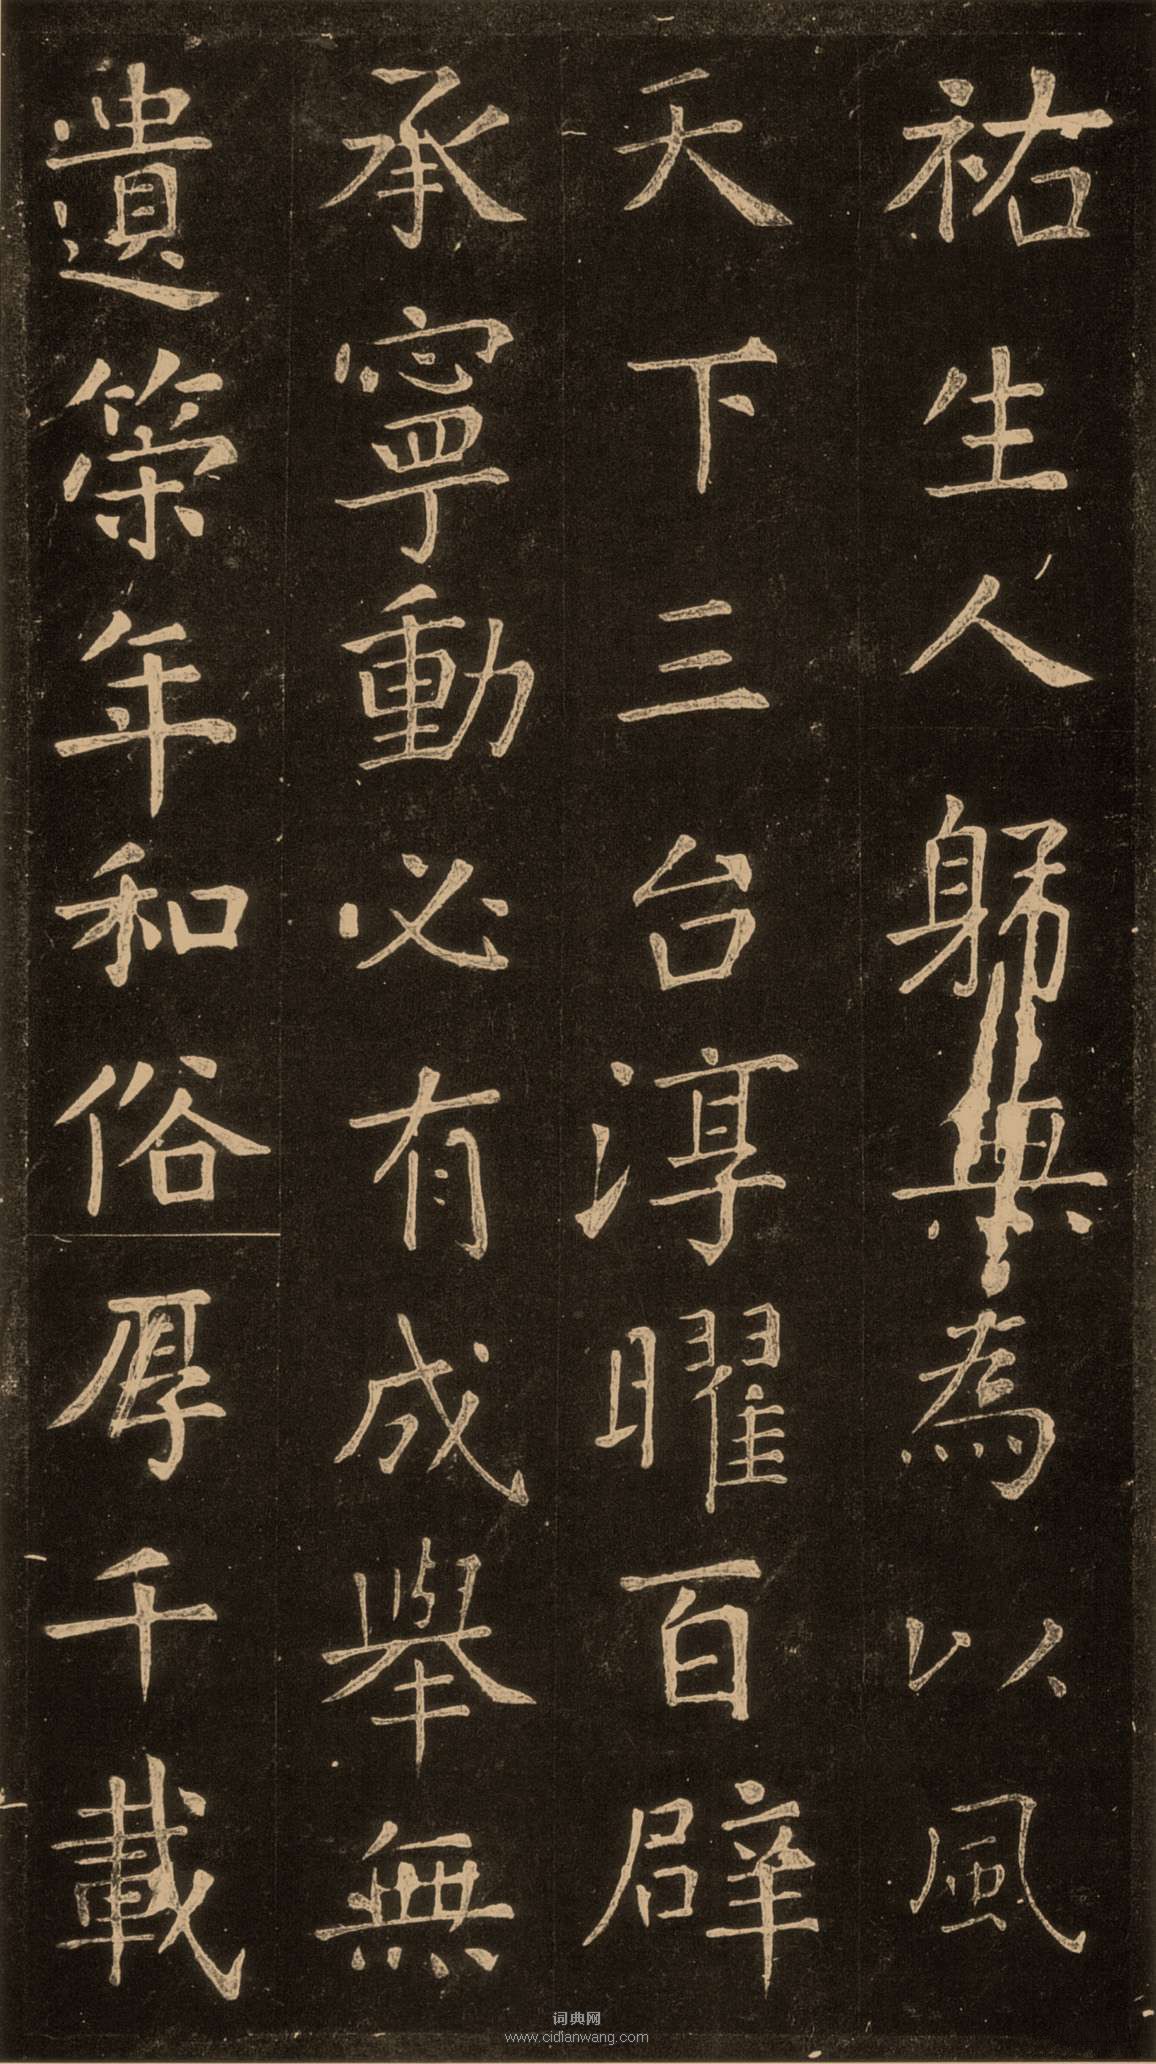 祐生人躬與為以風
天下三台淳曜百辟
承寧動必有成舉無
遺策年和俗厚千載
词典网
www.cidianwang.com